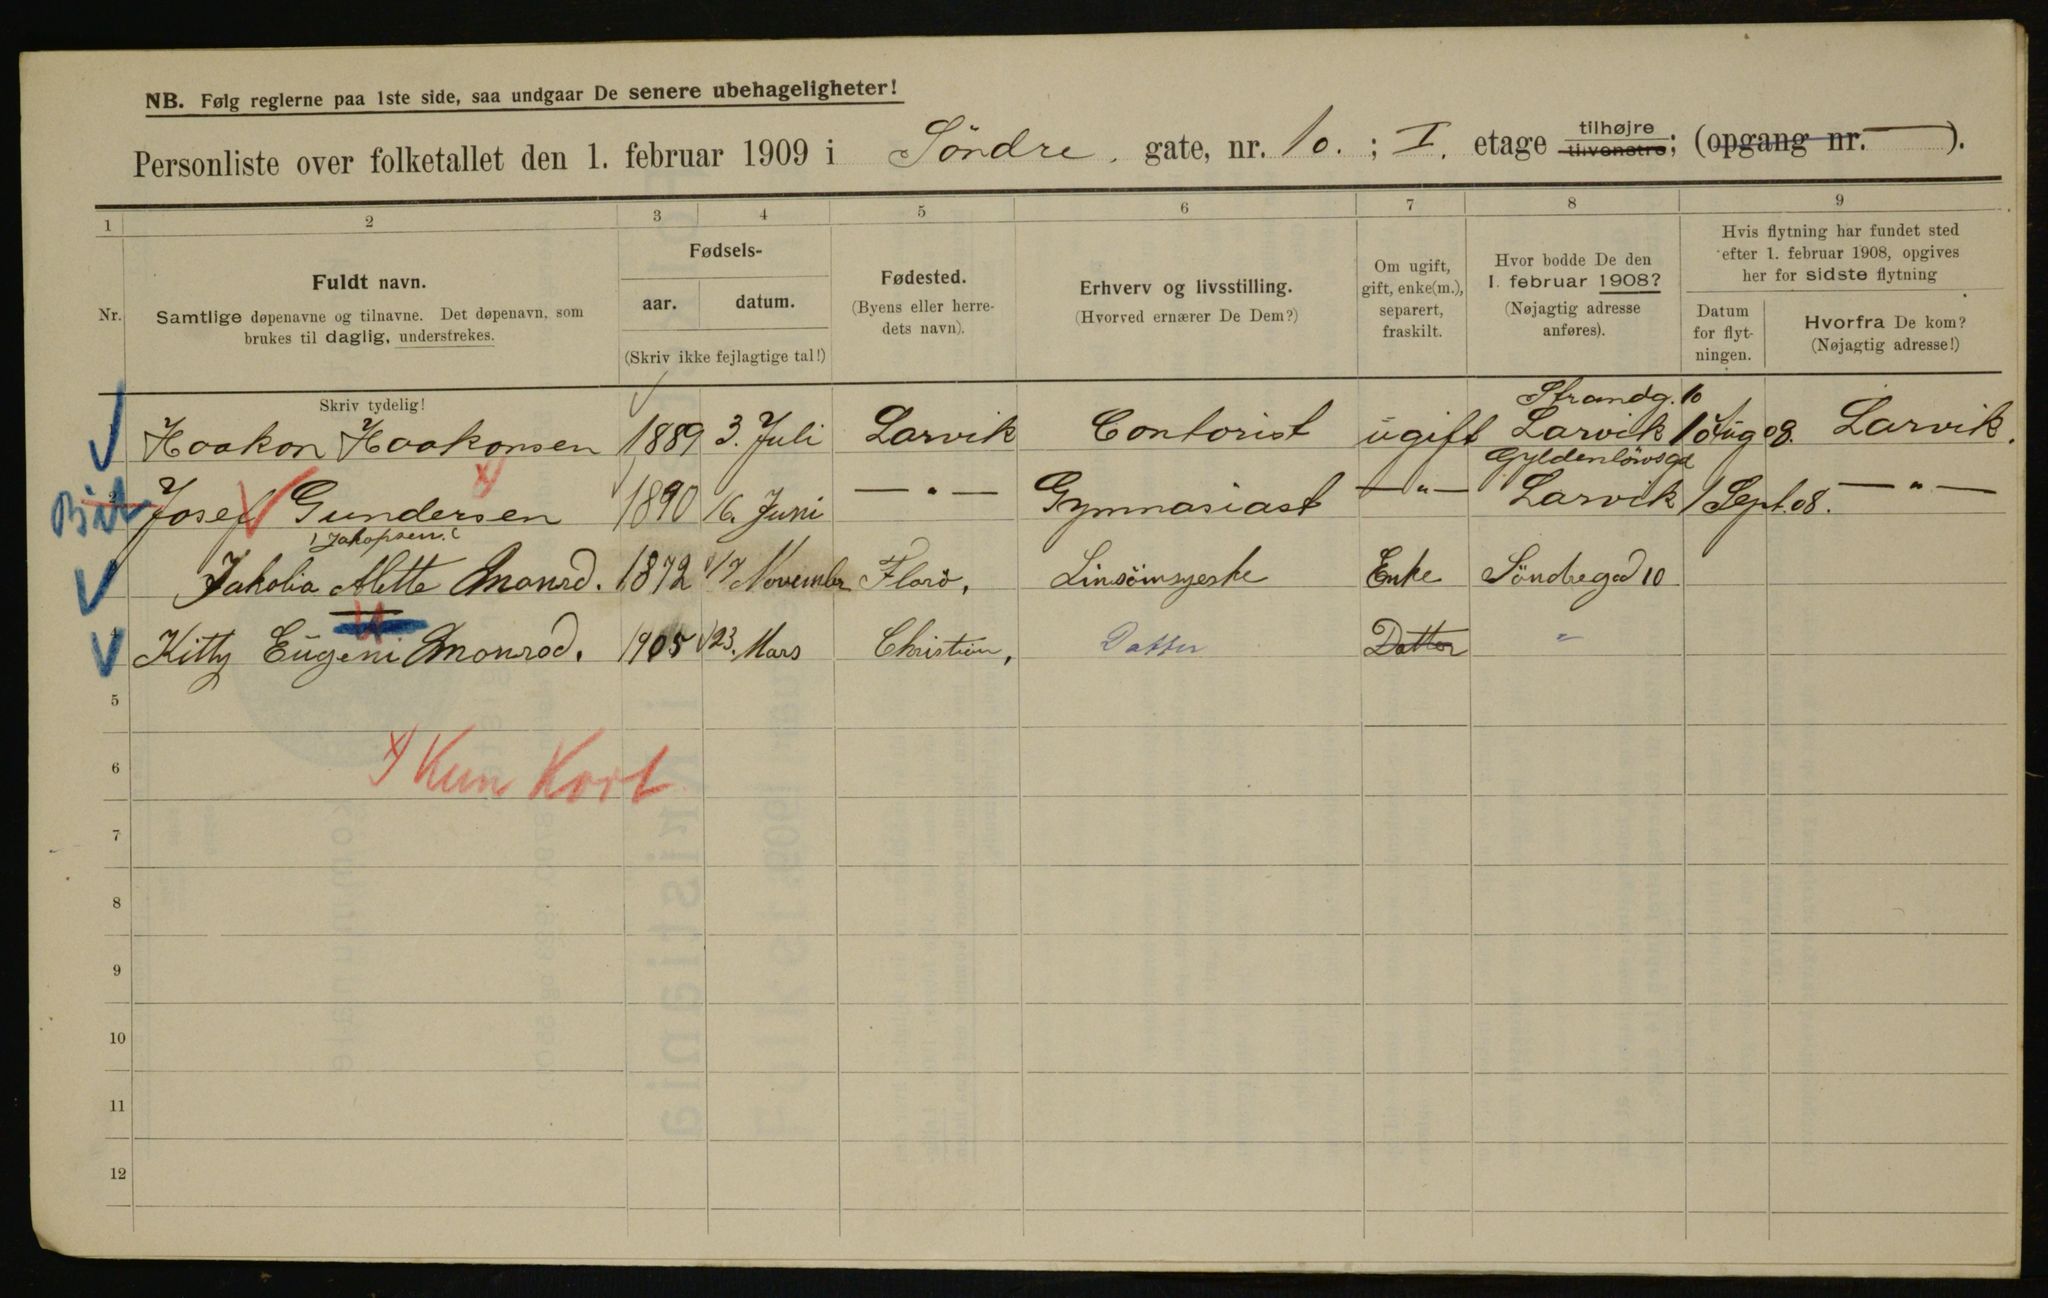 NB. Følg reglerne paa 1ste side, saa undgaar De senere ubehageligheter!
Personliste over folketallet den 1. februar 1909 i Söndre. gate, nr. 10. ; I. etage tilhøjre tilvenstre; (opgang nr. — ).
1 2 3 4 5 6 7 8 9
Nr.
Fuldt navn.
Samtlige døpenavne og tilnavne. Det døpenavn, som
brukes til daglig, understrekes.
Skriv tydelig!
Fødsels-
aar. datum.
(Skriv ikke fejlagtige tal!)
Fødested.
(Byens eller herre-
dets navn).
Erhverv og livsstilling.
(Hvorved ernærer De Dem?)
Om ugift,
gift, enke(m.),
separert,
fraskilt.
Hvor bodde De den
1. februar 1908?
(Nøjagtig adresse
anføres).
Hvis flytning har fundet sted
efter 1. februar 1908, opgives
her for sidste flytning
Datum
for flyt-
ningen.
Hvorfra De kom?
(Nøjagtig adresse!)
Strandg. 10
Haakon Haakonsen 1889 3. Juli Larvik Contorist ugift Larvik 10 Aug 08. Larvik.
Gyldenløvsgd
2 Josef Gundersen x) 1890 16. Juni — " — Gymnasiast — " — Larvik 1 Sept. 08. — " —
Jakopsen
Jakobia Alette Monrad. 1872 17 November Florö, Linsömsyeske Enke Söndregad 10
4 Kitty Eugeni Monrad. 1905 23. Mars Christian, Datter Datter "
5
6
x) Kun Kort
7
8
9
10
11
12